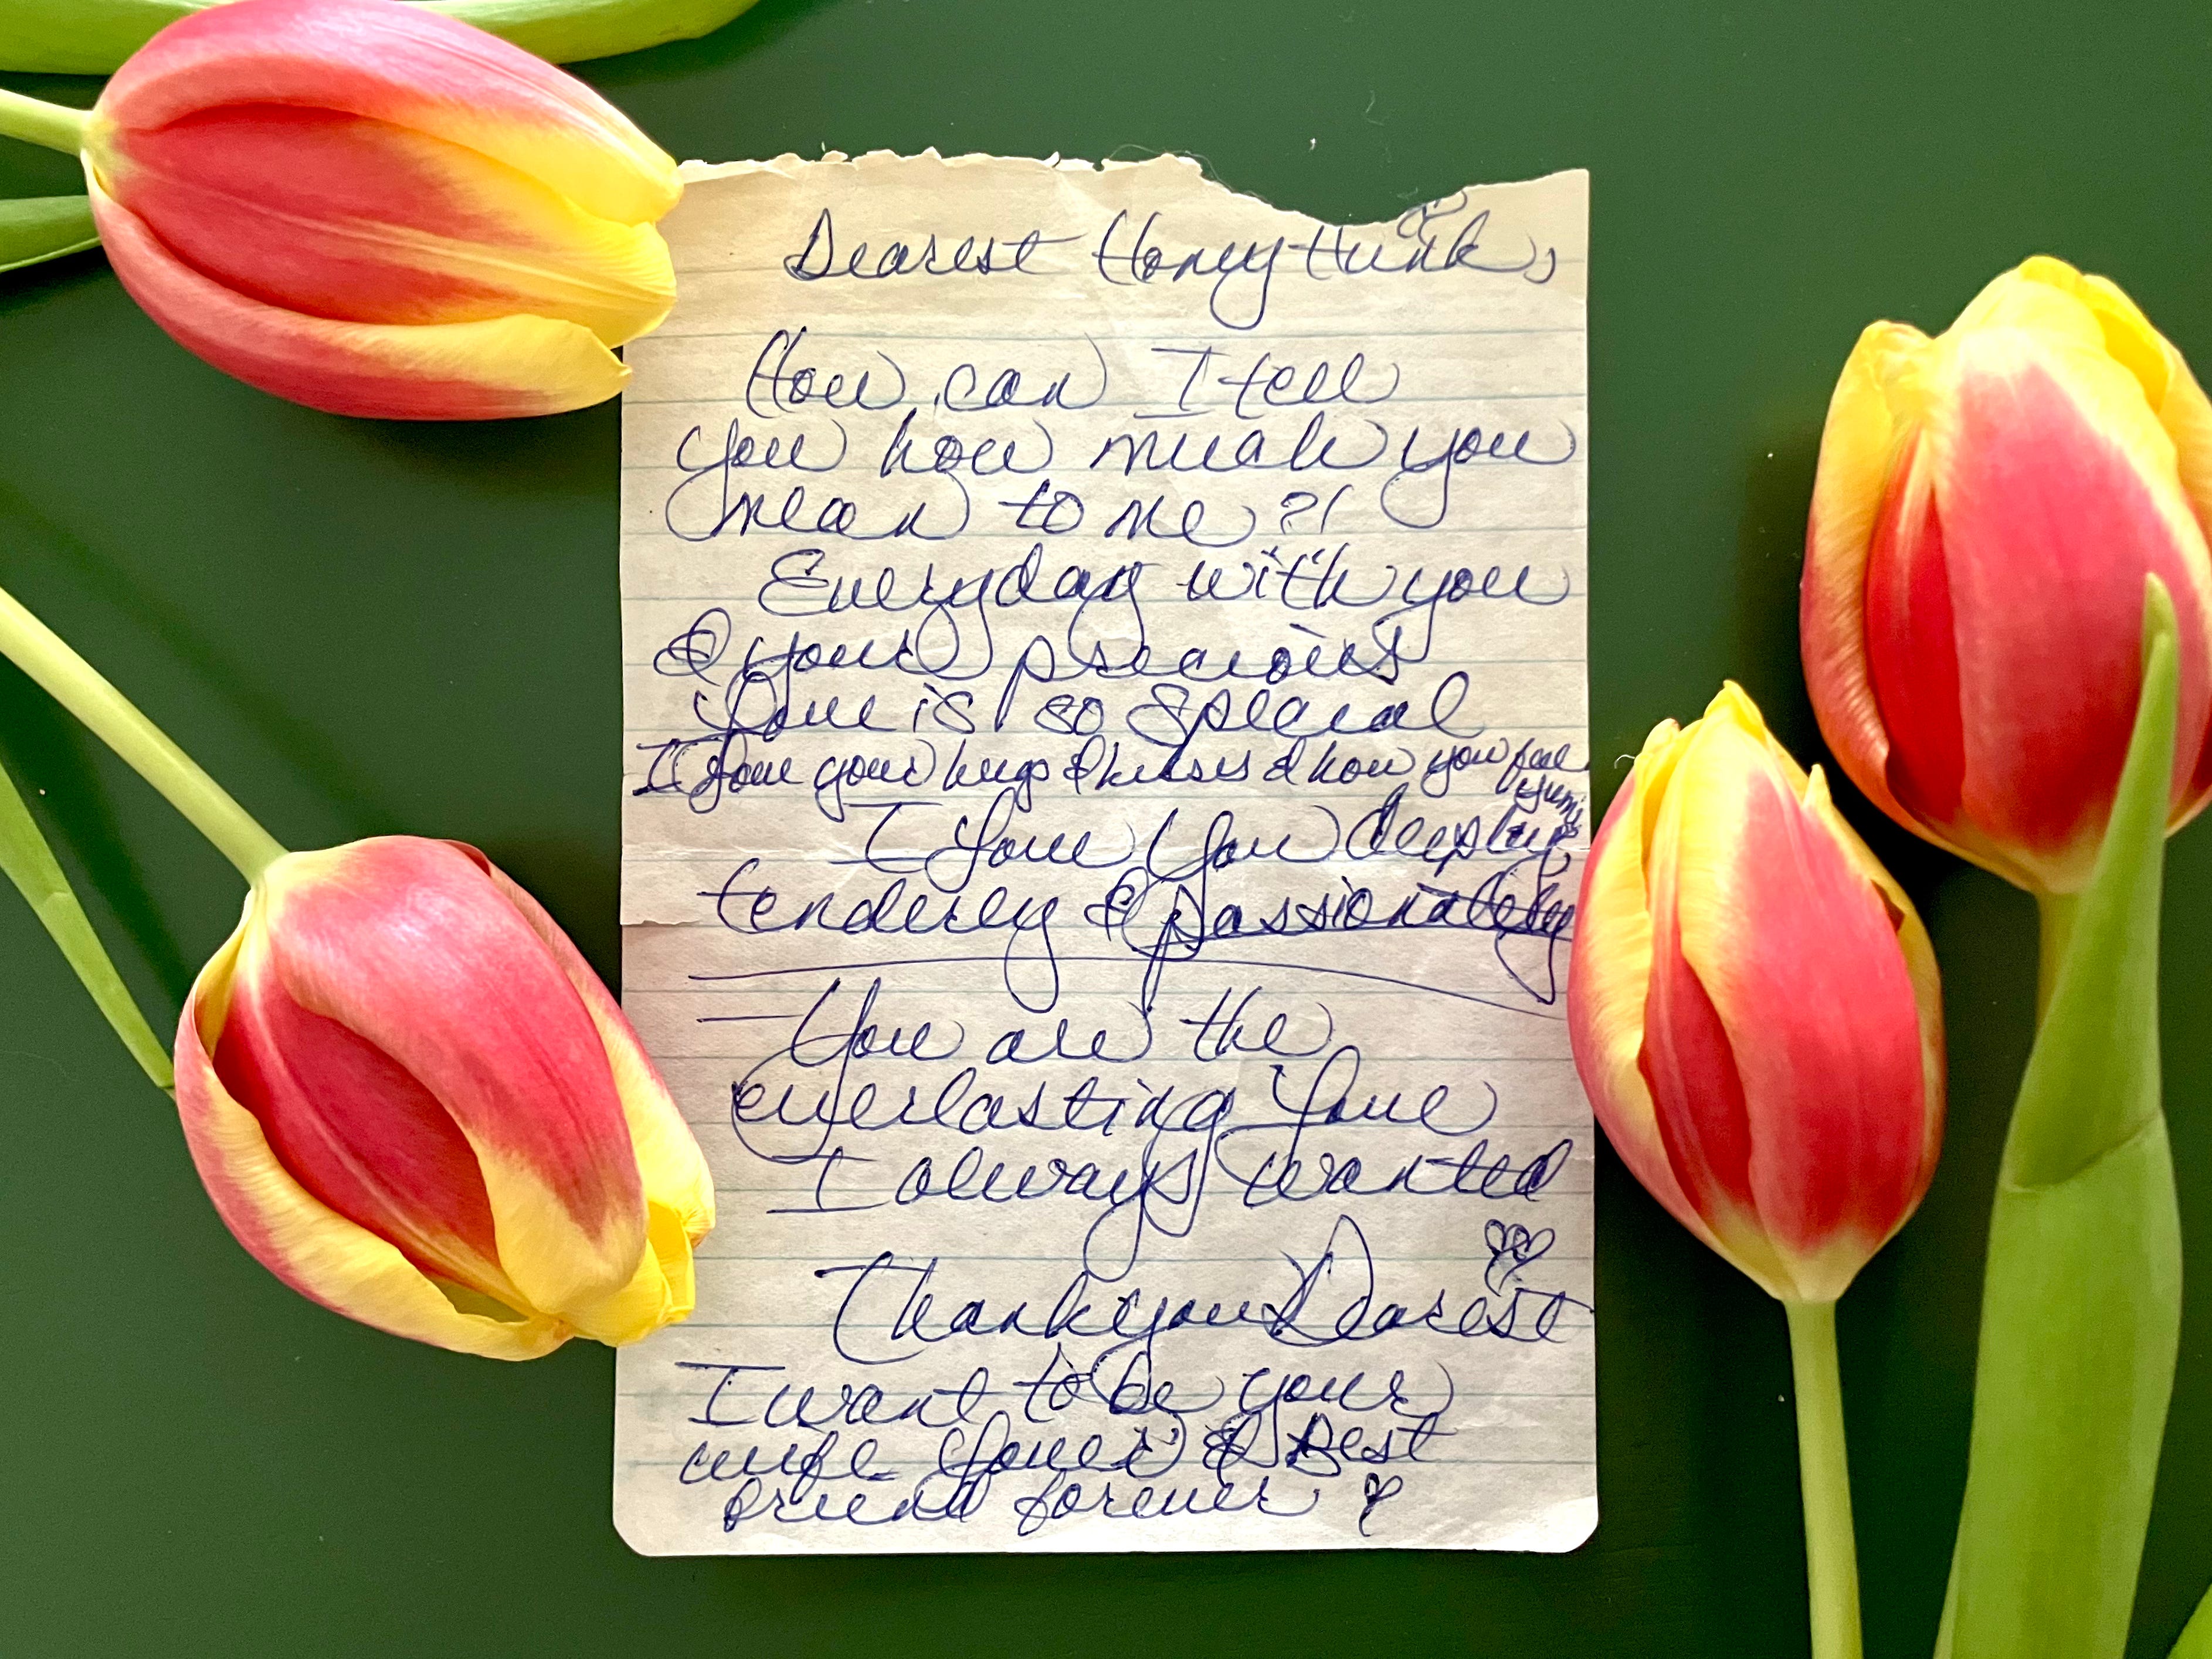 Dearest Honey Hunk,
How can I tell
you how much you
mean to me?!
Everyday with you
& your precious
love is so special
I love your hugs & kisses & how you feel
yumy
I love you deeply,
tenderly & passionately
You are the
everlasting love
I always wanted
Thank you Dearest
I want to be your
wife lover & Best
friend forever